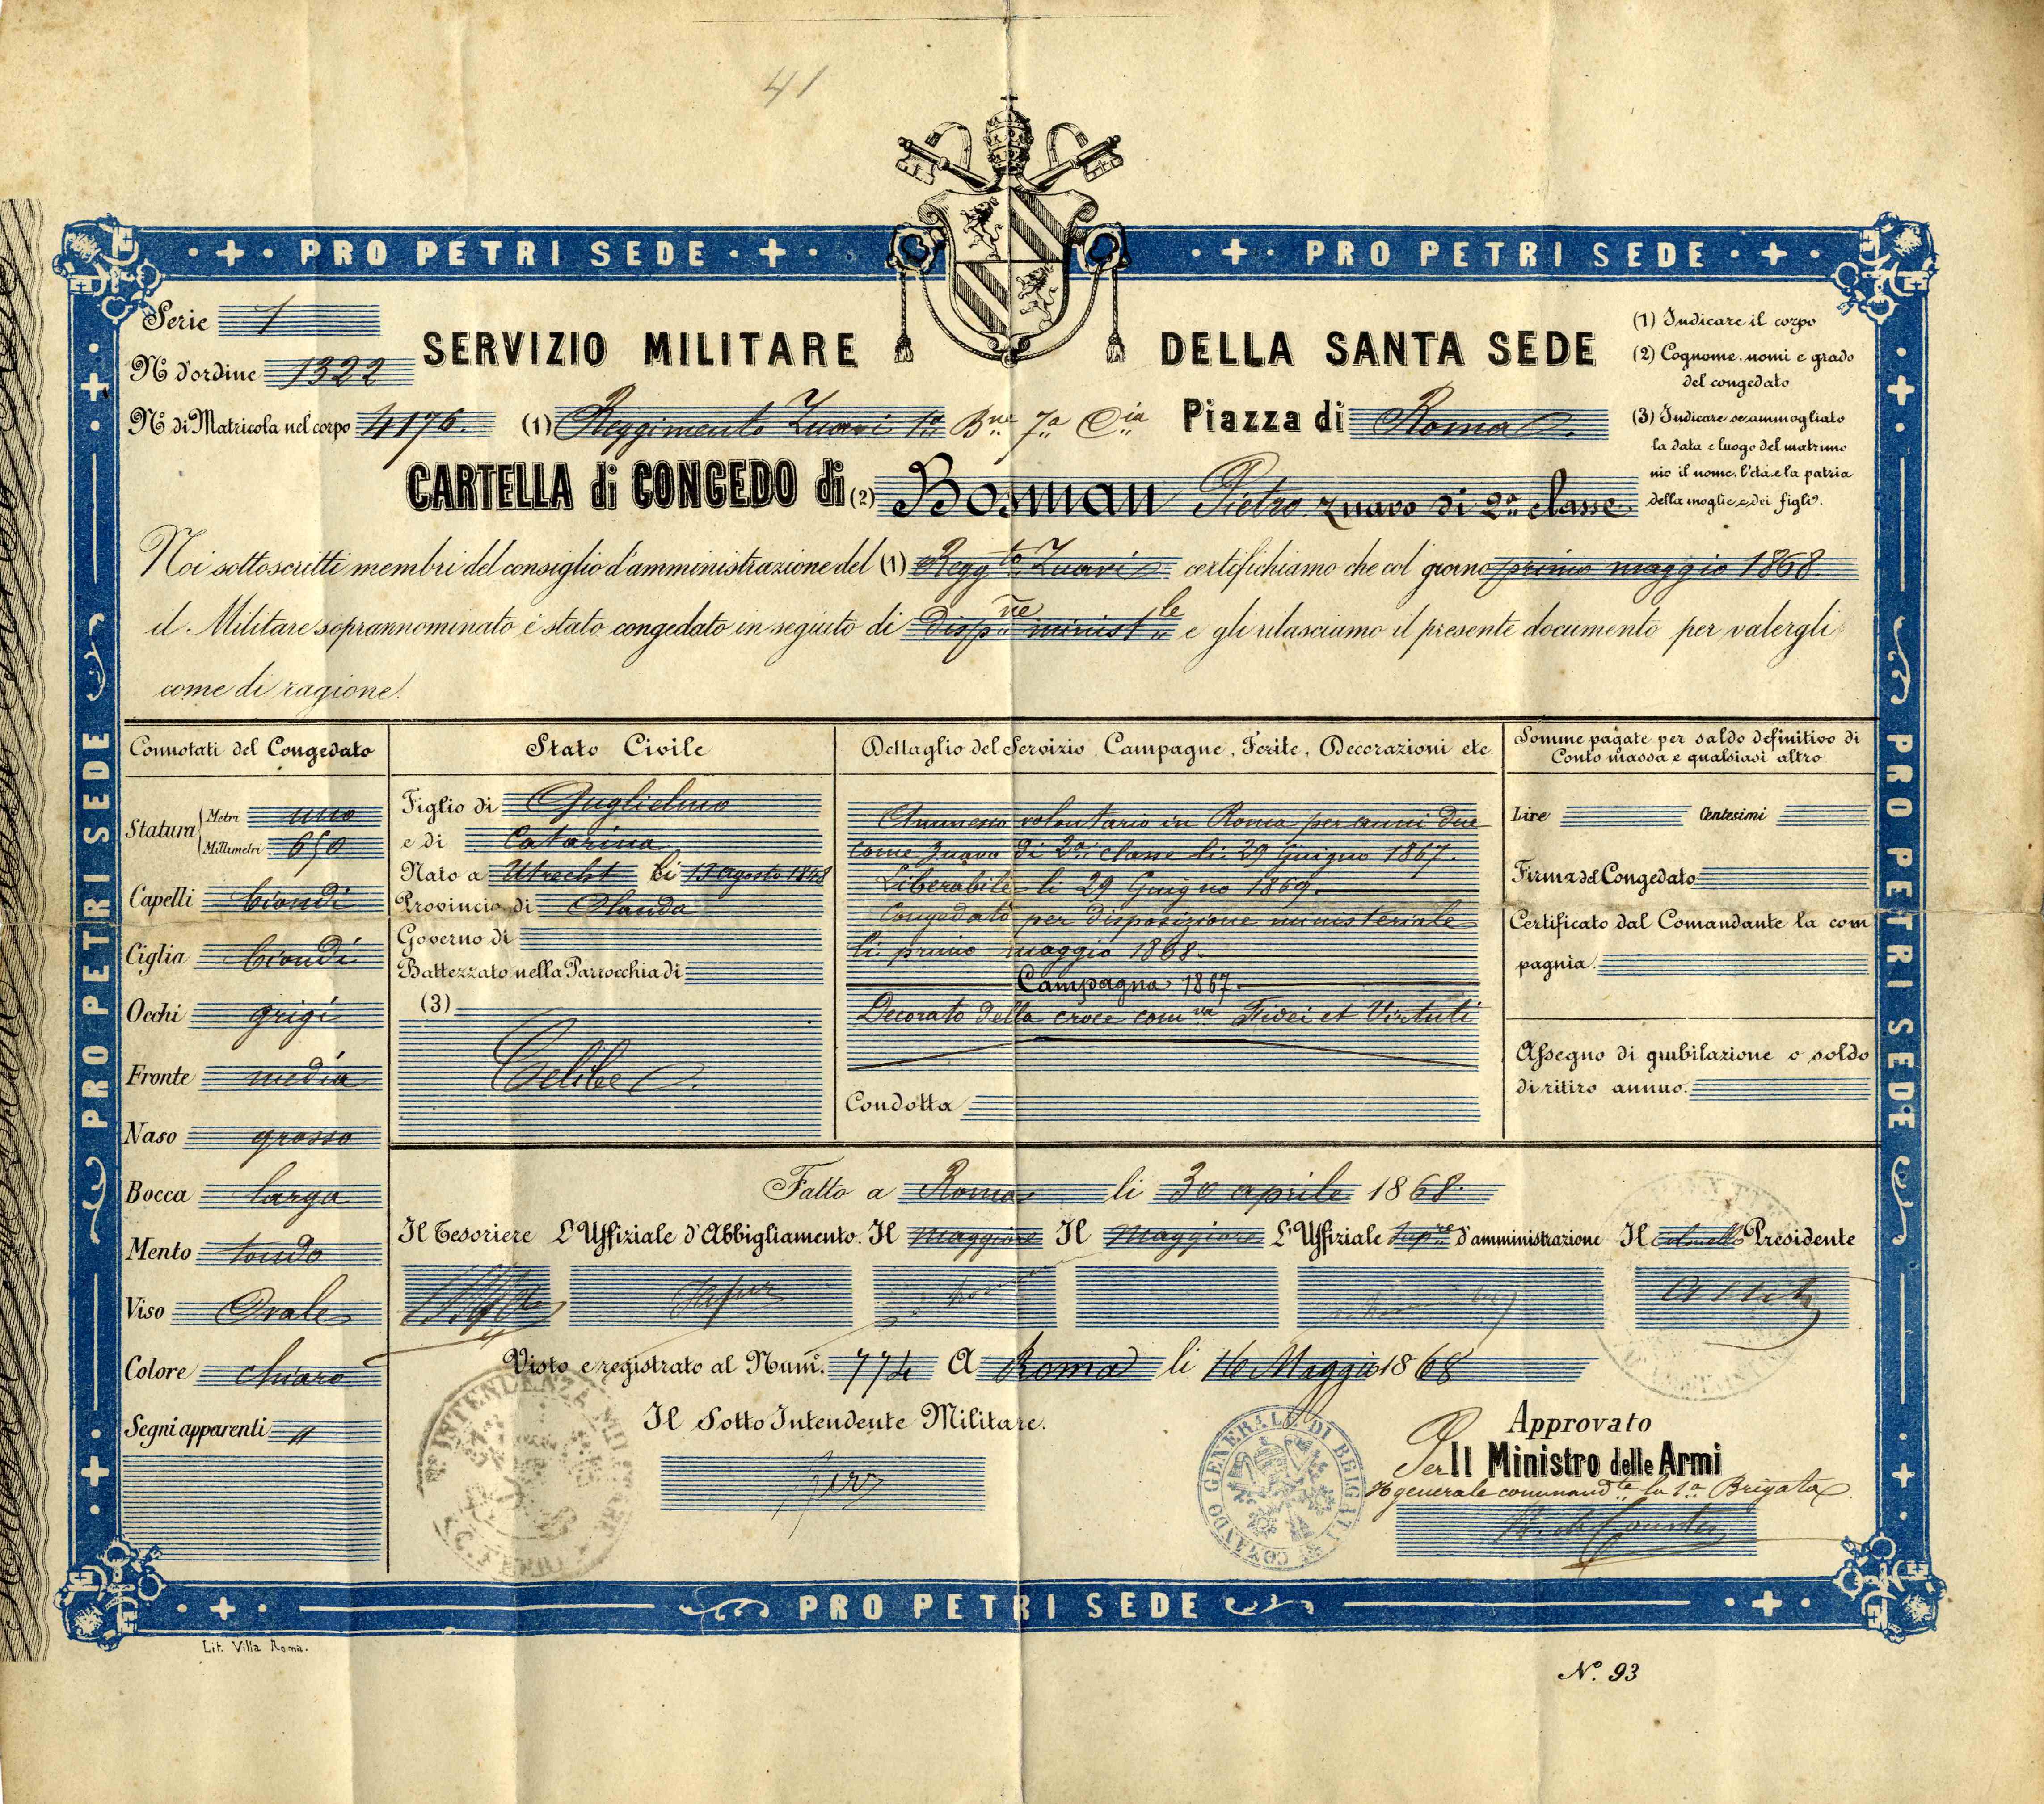 41
PRO PETRI SEDE
PRO PETRI SEDE
Serie 1
SERVIZIO MILITARE DELLA SANTA SEDE
Nº d'ordine 1322
Nº di Matricola nel corpo 4176. (1) Reggimento Zuavi 1º Bne 7a Cia Piazza di Roma
(1) Indicare il corpo
(2) Cognome, nomi e grado
del congedato
(3) Indicare se ammogliato
la data e luogo del matrimo
nio il nome, l'età e la patria
della moglie e dei figli.
CARTELLA di CONGEDO di (2) Bosman Pietro zuavo di 2a classe
Noi sottoscritti membri del consiglio d'amministrazione del (1) Reggto Zuavi certifichiamo che col giorno primo maggio 1868.
il Militare soprannominato è stato congedato in seguito di dispne ministle e gli rilasciamo il presente documento per valergli
come di ragione.
Connotati del Congedato
Statura Metri uno
Millimetri 650
Capelli biondi
Ciglia biondi
Occhi grigi
Fronte media
Naso grosso
Bocca larga
Mento tondo
Viso Ovale
Colore chiaro
Segni apparenti "
Stato Civile
Figlio di Guglielmo
e di Catarina
Nato a Utrecht li 13 agosto 1848
Provincia di Olanda
Governo di
Battezzato nella Parrocchia di
(3)
Celibe
Dettaglio del Servizio, Campagne, Ferite, Decorazioni etc.
Ammesso volontario in Roma per anni due
come zuavo di 2a classe li 29 Giugno 1867.
Liberabile li 29 Giugno 1869.
Congedato per disposizione ministeriale
li primo maggio 1868.
Campagna 1867.
Decorato della croce comva Fidei et Virtuti
Condotta
Somme pagate per saldo definitivo di
Conto massa e qualsiasi altro
Lire Centesimi
Firma del Congedato
Certificato dal Comandante la com
pagnia.
Assegno di giubilazione o soldo
di ritiro annuo.
Fatto a Roma li 30 aprile 1868.
Il Tesoriere L'Uffiziale d'Abbigliamento. Il Maggiore Il Maggiore L'Uffiziale Supre d'amministrazione Il Colonnello Presidente
Visto e registrato al Num. 774 A Roma li 16 Maggio 1868
Il Sotto Intendente Militare.
INTENDENZA MILITARE
COMANDO GENERALE DI BRIGATA
Approvato
Per Il Ministro delle Armi
Il generale commandte la 1a Brigata
PRO PETRI SEDE
PRO PETRI SEDE
PRO PETRI SEDE
Lit. Villa Roma.
N. 93